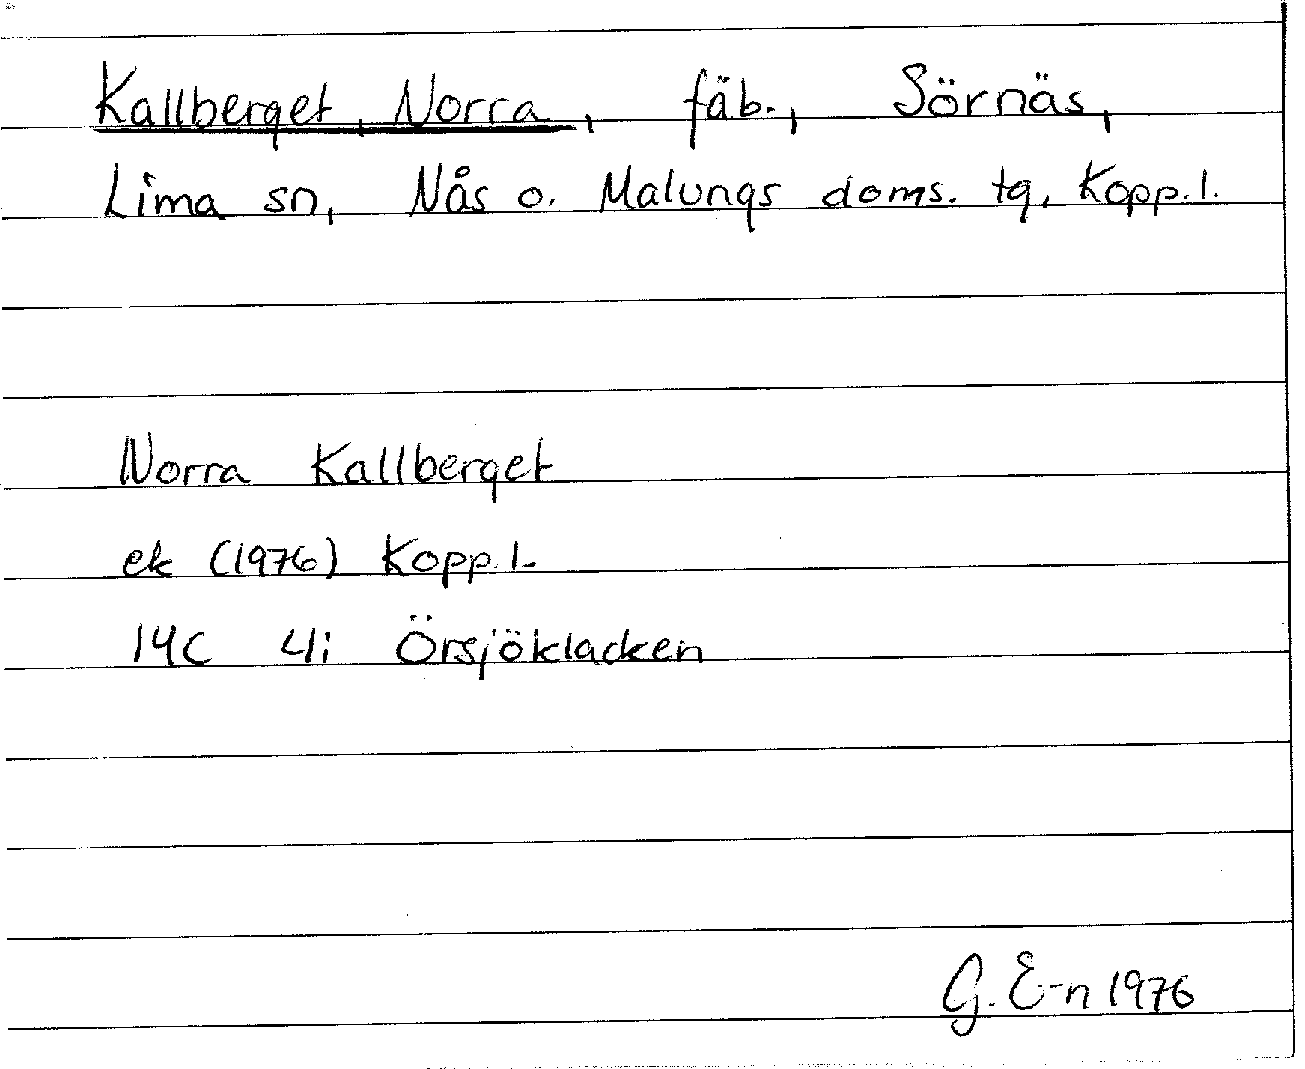 Kallberget, Norra, fäb., Sörnäs,
Lima sn, Nås o. Malungs doms. tg, Kopp. l.
Norra Kallberget
ek (1976) Kopp. l.
14C 4i Örsjöklacken
G. E-n 1976